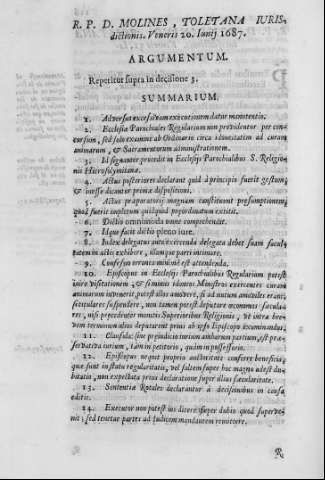 R. P. D. MOLINES, TOLETANA IURIS-
dictionis. Veneris 20. Iunij 1687.
ARGUMENTUM.
Reperitur supra in decisione 3.
SUMMARIUM.
1. Adversus excessivam executionem datur manutentio.
2. Ecclesiæ Parochiales Regularium non providentur per con-
cursum, sed solo examine ab Ordinario circa idoneitatem ad curam
animarum, & Sacramentorum administrationem.
3. Id procedit in Ecclesijs Parochialibus S. Religio-
nis Hierosolymitanæ.
4. Actus posteriores declarant quid à principio fuerit gestum,
& inesse dicuntur primæ dispositioni.
5. Actus præparatorij magnum constituunt præsumptionem,
quod fuerit impletum quidquid præordinatum extitit.
6. Dictio omnimoda omne comprehendit.
7. Idque facit dictio pleno iure.
8. Index delegatus ante exercenda delegata debet suam facul-
tatem in actis exhibere, aliàs pro parte invisa.
9. Confessio erronea minimè est attendenda.
10. Episcopus in Ecclesijs Parochialibus Regularium potest
in ire visitationem, & si minus idoneos Ministros exercentes curam
animarum invenerit, potest illos amovere, si ad nutum amovibiles erant,
seculares suspendere, non tamen potest deputare œconomos secula-
res, nisi præcedentibus monitis Superioribus Religionis, ut intra bre-
vem terminum alios deputarent prius ab ipso Episcopo examinandos.
11. Clausula; sine præjudicio iurium ambarum partium, est præ-
servativa iurium, tàm in petitorio, quàm in possessorio.
12. Episcopus nequit propria authoritate conferre beneficia,
quæ sunt in statu regularitatis, vel saltem super hoc magna adest du-
bitatio, non expectata prius declaratione super illius sæcularitate.
13. Sententia Rotales declarantur à decisionibus in causa
editis.
14. Executor non potest ius dicere super dubio quod superve-
nit; sed tenetur partes ad Iudicem mandantem remittere.
R